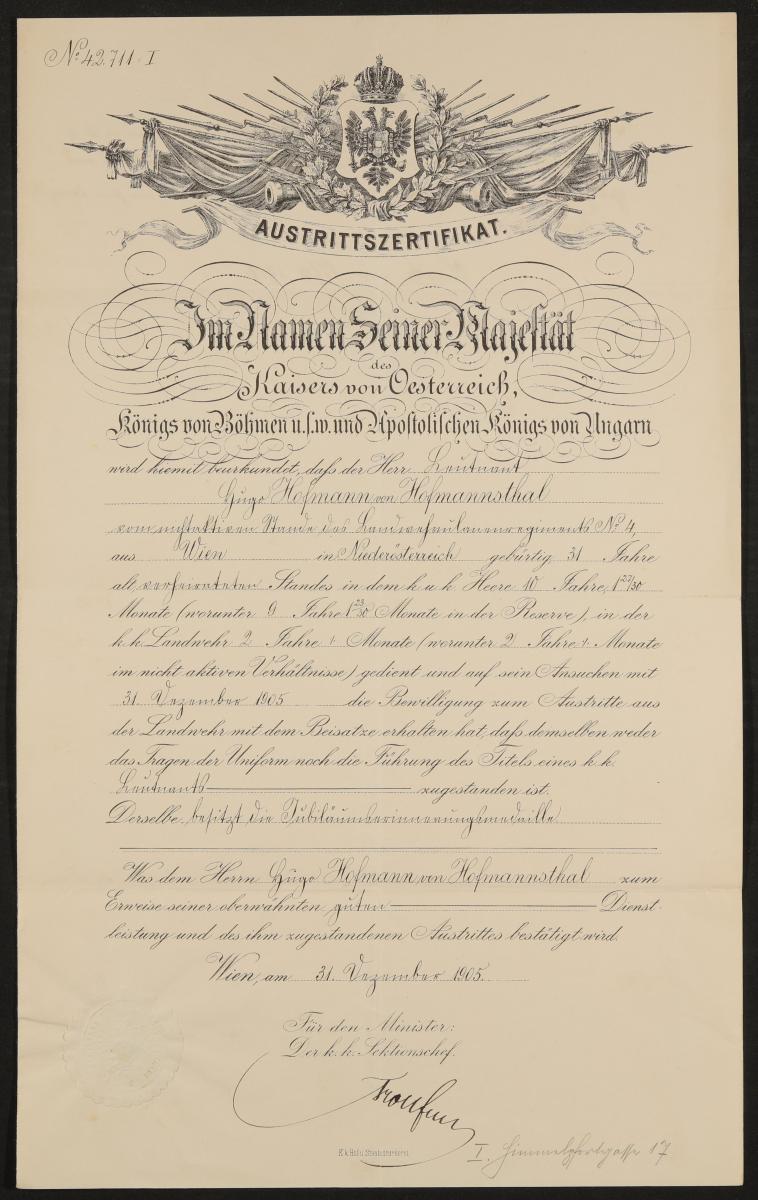 No. 42.711 I
AUSTRITTSZERTIFIKAT.
Im Namen Seiner Majestät
des
Kaisers von Oesterreich,
Königs von Böhmen u.s.w. und Apostolischen Königs von Ungarn
wird hiemit beurkundet, daſs der Herr Leutnant
Hugo Hofmann von Hofmannsthal
vom nichtaktiven Stande des Landwehrulanenregiments No. 4,
aus Wien in Niederösterreich gebürtig, 31 Jahre
alt, verheirateten Standes in dem k. u. k. Heere 10 Jahre, 1 27/30
Monate (worunter 9 Jahre 1 23/30 Monate in der Reserve), in der
k. k. Landwehr 2 Jahre ÷ Monate (worunter 2 Jahre ÷ Monate
im nicht aktiven Verhältnisse) gedient und auf sein Ansuchen mit
31. Dezember 1905 die Bewilligung zum Austritte aus
der Landwehr mit dem Beisatze erhalten hat, daſs demselben weder
das Tragen der Uniform noch die Führung des Titels eines k. k.
Leutnants zugestanden ist.
Derselbe besitzt die Jubiläumserinnerungsmedaille
Was dem Herrn Hugo Hofmann von Hofmannsthal zum
Erweise seiner oberwähnten guten Dienst-
leistung und des ihm zugestandenen Austrittes bestätigt wird.
Wien, am 31. Dezember 1905.
Für den Minister:
Der k. k. Sektionschef.
K. k. Hof u. Staatsdruckerei.
I. Himmelpfortgasse 17